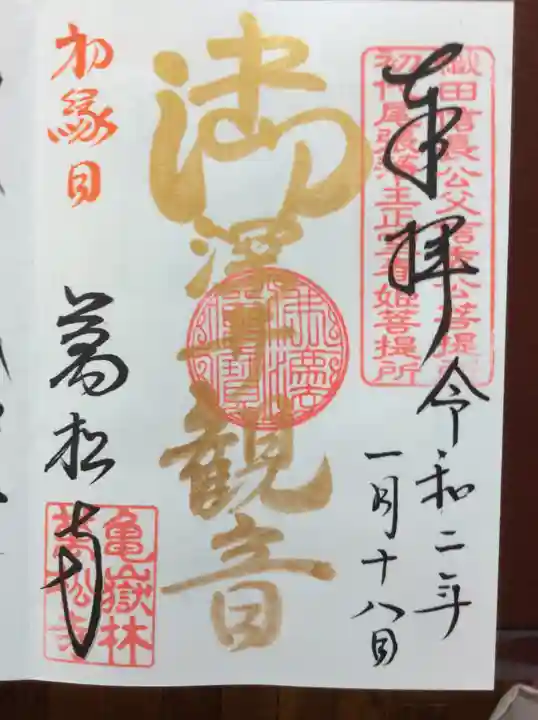 奉拝
令和二年
一月十八日
織田信長公父信秀公菩提所
初代尾張藩主正室春姫菩提所
御深井観音
初縁目
萬松寺
亀嶽林
萬松寺